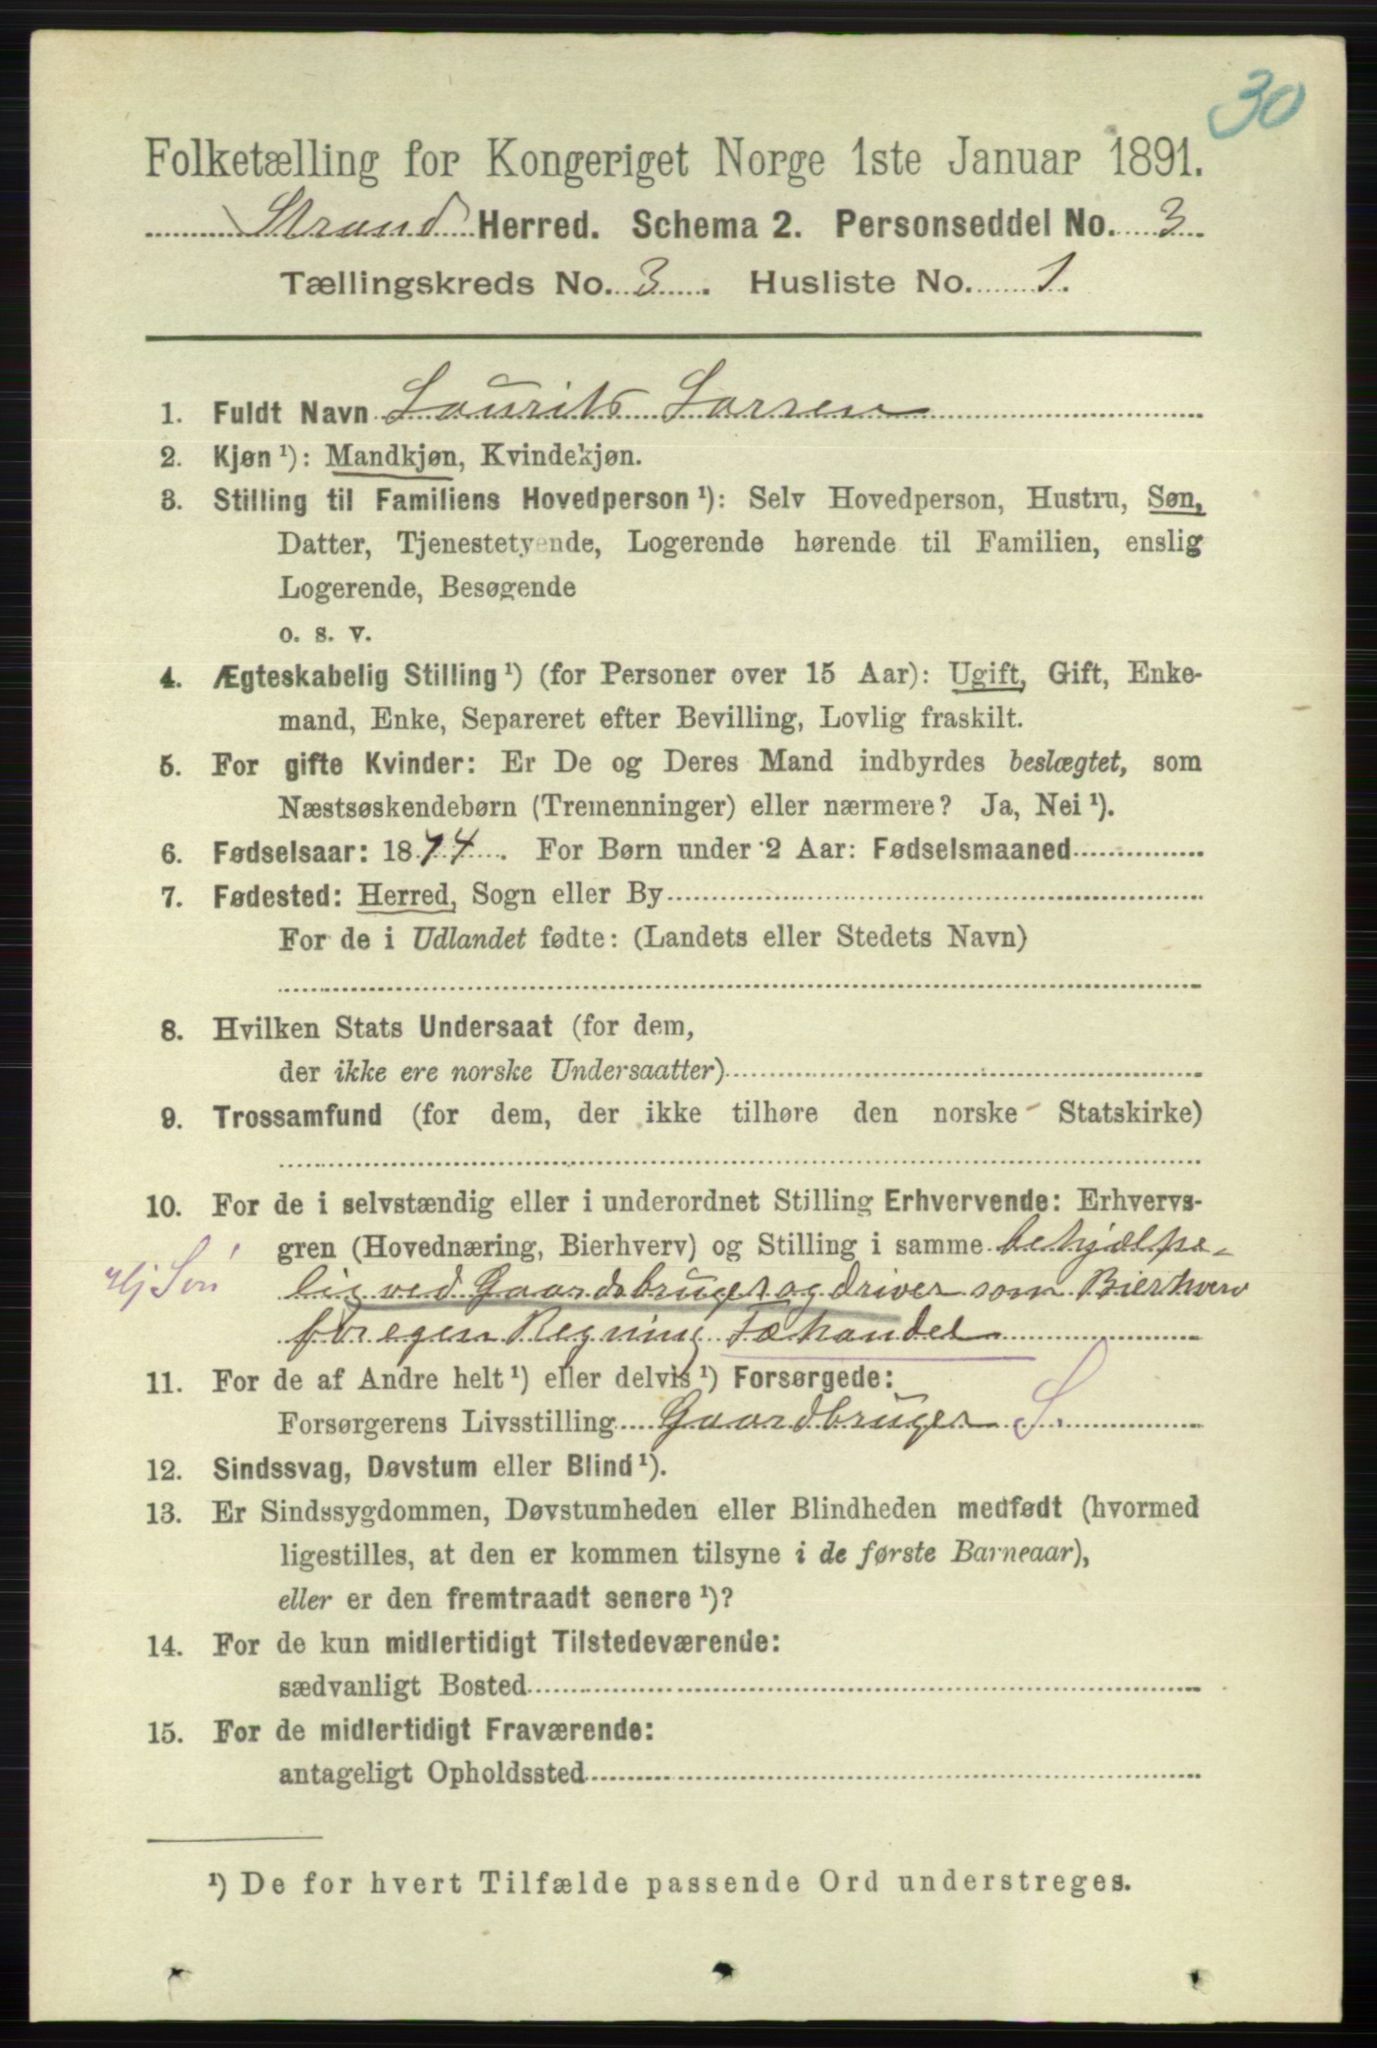 30
Folketælling for Kongeriget Norge 1ste Januar 1891.
Strand Herred. Schema 2. Personseddel No. 3
Tællingskreds No. 3. Husliste No. 1.
1. Fuldt Navn Laurits Larsen
2. Kjøn ¹): Mandkjøn, Kvindekjøn.
3. Stilling til Familiens Hovedperson ¹): Selv Hovedperson, Hustru, Søn,
Datter, Tjenestetyende, Logerende hørende til Familien, enslig
Logerende, Besøgende
o. s. v.
4. Ægteskabelig Stilling ¹) (for Personer over 15 Aar): Ugift, Gift, Enke-
mand, Enke, Separeret efter Bevilling, Lovlig fraskilt.
5. For gifte Kvinder: Er De og Deres Mand indbyrdes beslægtet, som
Næstsøskendebørn (Tremenninger) eller nærmere? Ja, Nei ¹).
6. Fødselsaar: 1874. For Børn under 2 Aar: Fødselsmaaned
7. Fødested: Herred, Sogn eller By
For de i Udlandet fødte: (Landets eller Stedets Navn)
8. Hvilken Stats Undersaat (for dem,
der ikke ere norske Undersaatter)
9. Trossamfund (for dem, der ikke tilhøre den norske Statskirke)
10. For de i selvstændig eller i underordnet Stilling Erhvervende: Erhvervs-
gren (Hovednæring, Bierhverv) og Stilling i samme behjælpe-
Hj Søn lig ved Gaardsbruget og driver som Bierhverv
for egen Regning Fæhandel
11. For de af Andre helt ¹) eller delvis ¹) Forsørgede:
Forsørgerens Livsstilling Gaardbruger S
12. Sindssvag, Døvstum eller Blind ¹).
13. Er Sindssygdommen, Døvstumheden eller Blindheden medfødt (hvormed
ligestilles, at den er kommen tilsyne i de første Barneaar),
eller er den fremtraadt senere ¹)?
14. For de kun midlertidigt Tilstedeværende:
sædvanligt Bosted
15. For de midlertidigt Fraværende:
antageligt Opholdssted
¹) De for hvert Tilfælde passende Ord understreges.